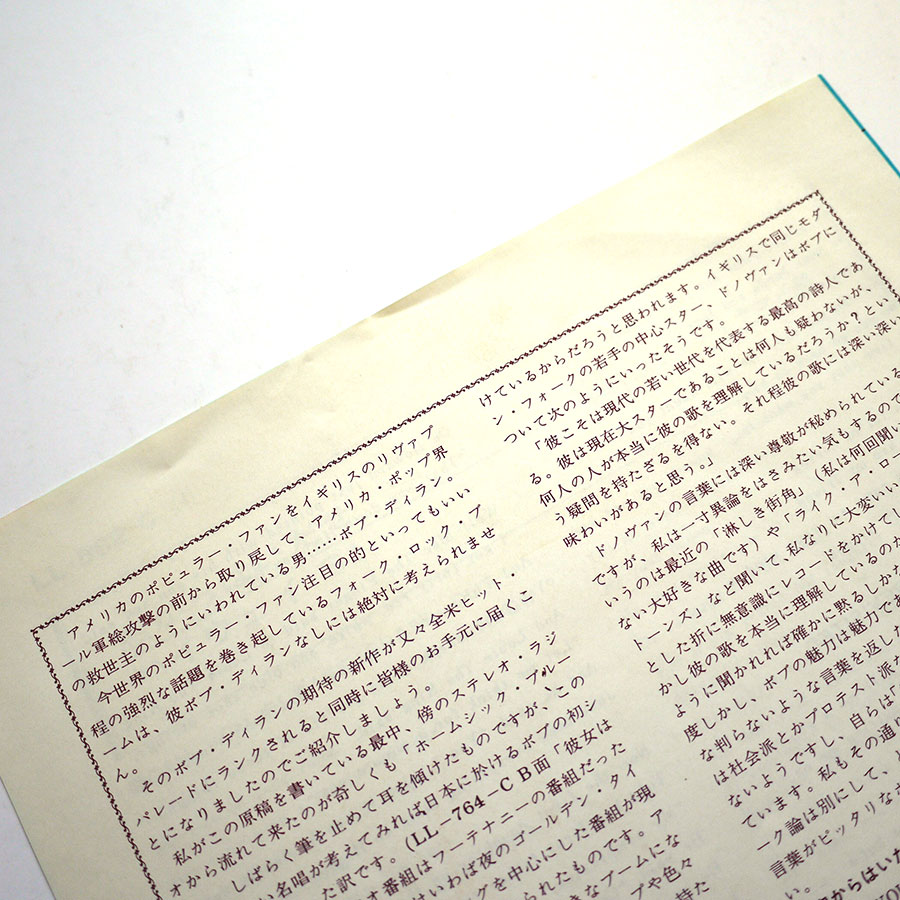 アメリカのポピュラー・ファンをイギリスのリヴァプ
ール軍総攻撃の前から取り戻して、アメリカ・ポップ界
の救世主のようにいわれている男……ボブ・ディラン。
今世界のポピュラー・ファン注目の的といってもいい
程の強烈な話題を巻き起しているフォーク・ロック・ブ
ームは、彼ボブ・ディランなしには絶対に考えられませ
ん。
そのボブ・ディランの期待の新作が又々全米ヒット・
パレードにランクされると同時に皆様のお手元に届くこ
とになりましたのでご紹介しましょう。
私がこの原稿を書いている最中、傍のステレオ・ラジ
オから流れて来たのが奇しくも「ホームシック・ブルー
しばらく筆を止めて耳を傾けたものですが、この
い名唱が考えてみれば日本に於けるボブの初シ
た訳です。(LL−764−C B面「彼女は
オ番組はフーテナニーの番組だった
はいわば夜のゴールデン・タイ
グを中心にした番組が現
られたものです。ア
きなブームにな
プや色々
持た
けているからだろうと思われます。イギリスで同じモダ
ン・フォークの若手の中心スター、ドノヴァンはボブに
ついて次のようにいったそうです。
「彼こそは現代の若い世代を代表する最高の詩人であ
る。彼は現在大スターであることは何人も疑わないが、
何人の人が本当に彼の歌を理解しているだろうか？とい
う疑問を持たざるを得ない。それ程彼の歌には深い深い
味わいがあると思う。」
ドノヴァンの言葉には深い尊敬が秘められている
ですが、私は一寸異論をはさみたい気もするので
いうのは最近の「淋しき街角」（私は何回聞い
ない大好きな曲です）や「ライク・ア・ロー
トーンズ」など聞いて、私なりに大変いい
とした折に無意識にレコードをかけてし
かし彼の歌を本当に理解しているのか
ように聞かれれば確かに黙るしかな
度しかし、ボブの魅力は魅力であ
な判らないような言葉を返した
は社会派とかプロテスト派だ
ないようですし、自らは「
ています。私もその通り
ーク論は別にして、
言葉がピッタリなが
い。
からはいた